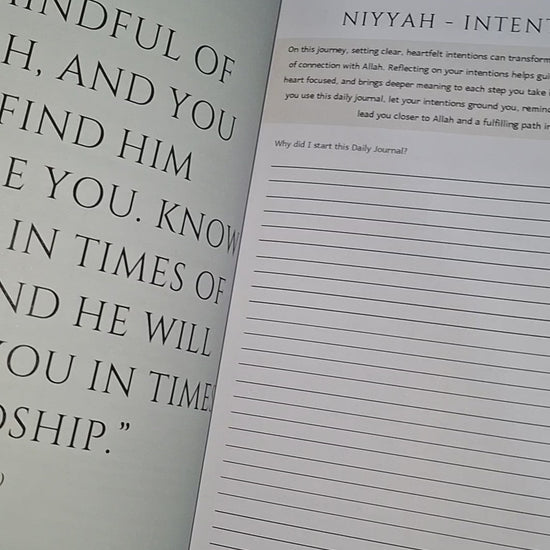 INDFUL OF
H, AND YOU
FIND HIM
E YOU. KNOW
IN TIMES OF
ND HE WILL
YOU IN TIMES
DSHIP.”
)
NIYYAH - INTENT
On this journey, setting clear, heartfelt intentions can transform
of connection with Allah. Reflecting on your intentions helps gui
heart focused, and brings deeper meaning to each step you take
you use this daily journal, let your intentions ground you, remind
lead you closer to Allah and a fulfilling path in
Why did I start this Daily Journal?